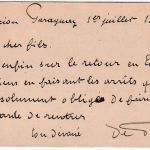 cion Paraguay 1er juillet 1
cher fils.
enfin sur le retour en E
en faisant les arrêts q
solument obligé de faire
tarde de rentrer
ton dévoué
de